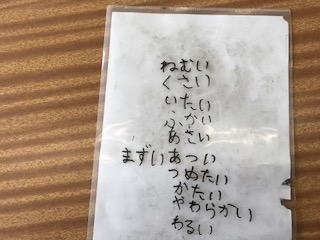 ねむい
くさい
いたい
ふかい
あさい
まずい あつい
つめたい
かたい
やわらかい
わるい